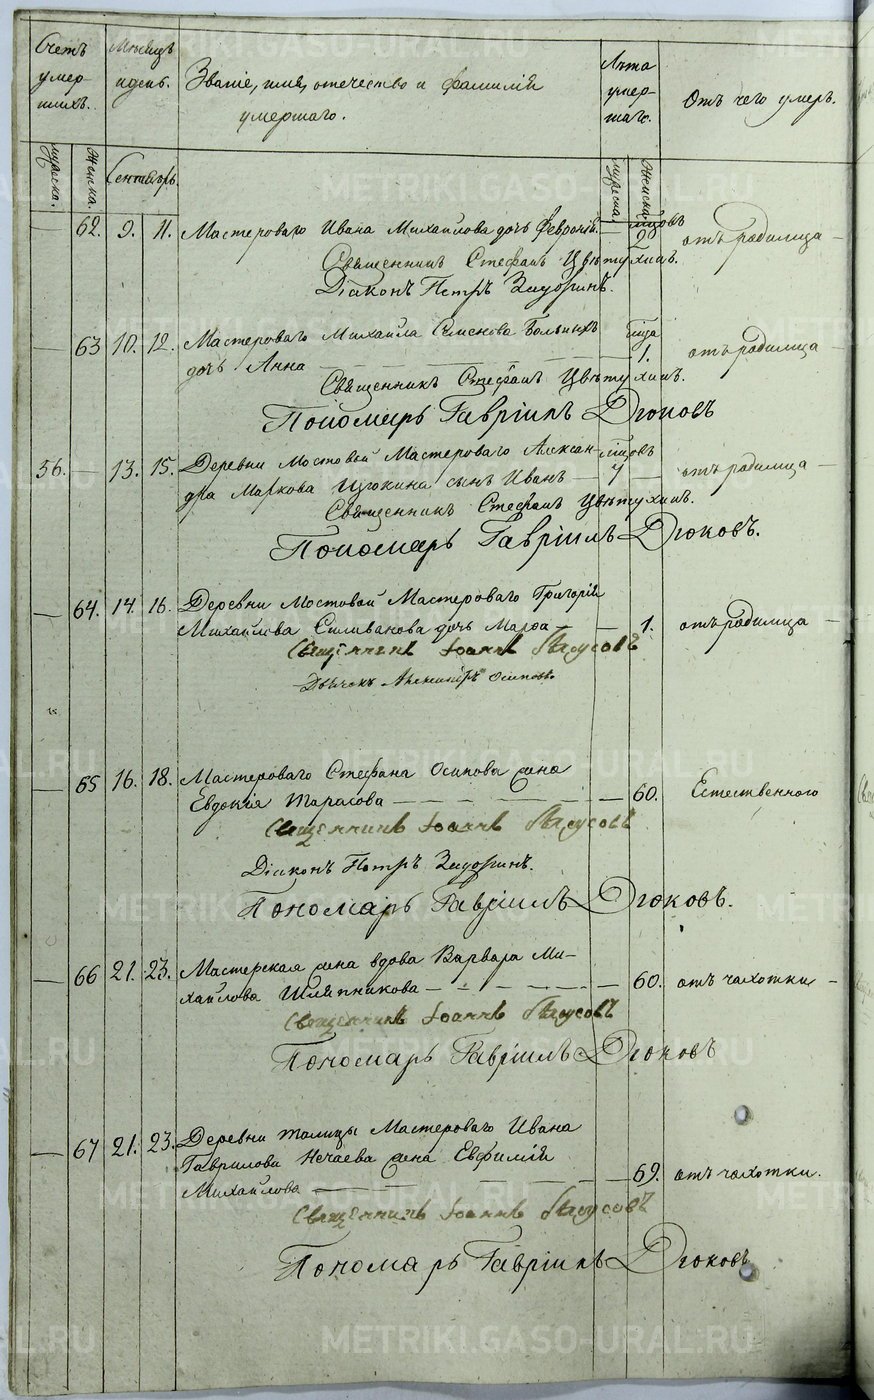 Счетъ умер- шихъ.
Мѣсяцъ и день.
Званіе, имя, отечество и фамилія
умершаго.
Лѣта умер- шаго.
Отъ чего умеръ.
мужска. женска. Сентябрь. мужска. женска.
— 62. 9. 11. Мастероваго Ивана Михайлова дочь Февронія. — мѣсяцовъ
9. отъ родимца —
Священникъ Стефанъ Цвѣтухинъ.
Діаконъ Петръ
— 63 10. 12. Мастероваго Михаила Семенова
дочь Анна — 1. отъ родимца —
Священникъ Стефанъ Цвѣтухинъ.
Пономарь Гавріилъ Дюковъ
56. — 13. 15. Деревни Мостовой Мастероваго Алексан- мѣсяцовъ
дра Маркова сынъ Иванъ — 7 — отъ родимца —
Священникъ Стефанъ Цвѣтухинъ.
Пономарь Гавріилъ Дюковъ.
— 64. 14. 16. Деревни Мостовой Мастероваго Григорія
Михайлова Селиванова дочь Марѳа — 1. отъ родимца —
Священникъ Іоаннъ
Дьячокъ Осиповъ
— 65 16. 18. Мастероваго Стефана Осипова жена
Евдокія Тарасова — 60. Естественного
Священникъ Іоаннъ
Діаконъ Петръ
Пономарь Гавріилъ Дюковъ.
— 66 21. 23. Мастерская жена вдова Варвара Ми-
хайлова Шляпникова — 60. отъ чахотки —
Священникъ Іоаннъ
Пономарь Гавріилъ Дюковъ
— 67 21. 23. Деревни Талицы Мастероваго Ивана
Гаврилова Нечаева жена Евфимія
Михайлова — 69. отъ чахотки.
Священникъ Іоаннъ
Пономарь Гавріилъ Дюковъ
METRIKI.GASO-URAL.RU